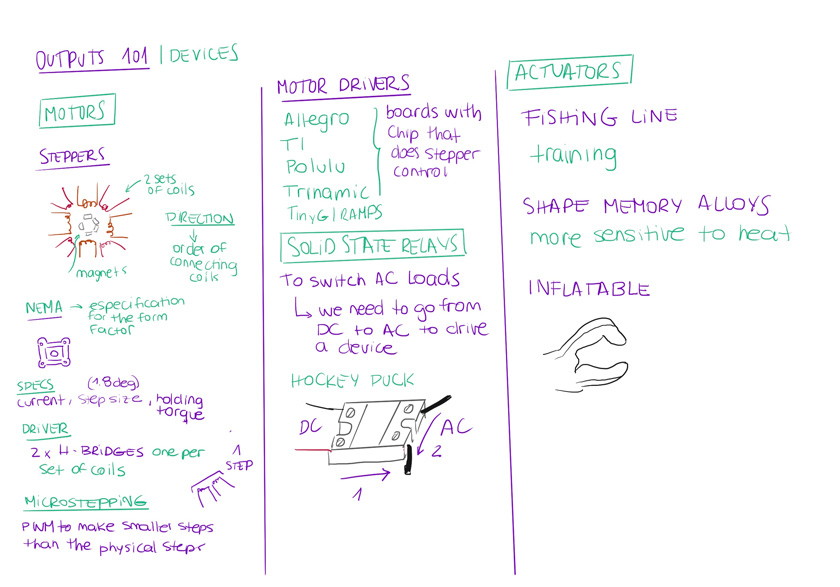 OUTPUTS 101 | DEVICES
MOTORS
STEPPERS
2 sets
of coils
magnets
DIRECTION
order of
connecting
coils
NEMA → especification
for the form
factor
SPECS (1.8deg)
current, step size, holding
torque
DRIVER
2 x H-BRIDGES one per
set of coils
1
STEP
MICROSTEPPING
PWM to make smaller steps
than the physical steps
MOTOR DRIVERS
Allegro
TI
Polulu
Trinamic
TinyG/RAMPS
boards with
chip that
does stepper
control
SOLID STATE RELAYS
To switch AC Loads
we need to go from
DC to AC to drive
a device
HOCKEY DUCK
DC
AC
2
1
ACTUATORS
FISHING LINE
training
SHAPE MEMORY ALLOYS
more sensitive to heat
INFLATABLE